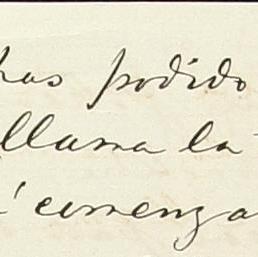 has podido
llama la
í comenza